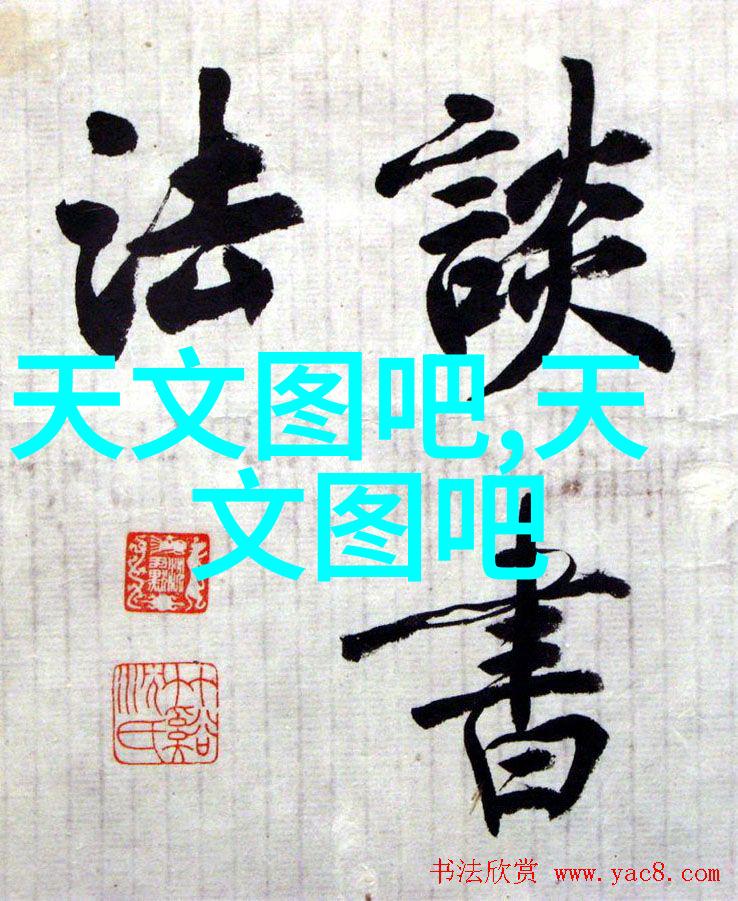 談書
法
天文图吧,天
文图吧
书法欣赏 www.yac8.com